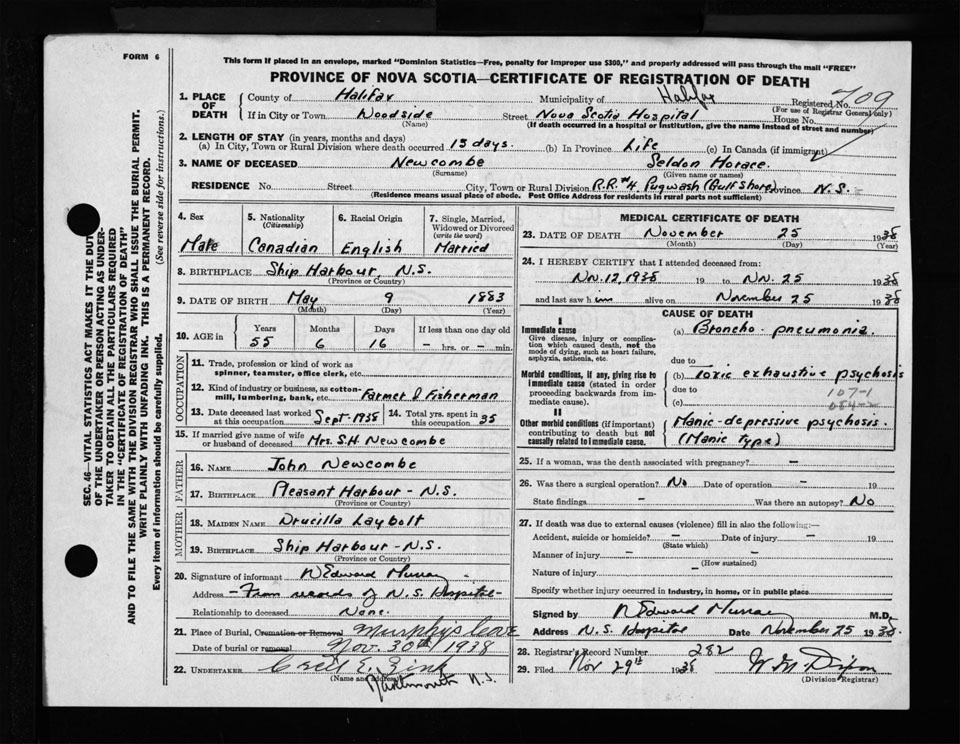 FORM 6
This form if placed in an envelope, marked "Dominion Statistics—Free, penalty for improper use $300," and properly addressed will pass through the mail "FREE"
PROVINCE OF NOVA SCOTIA—CERTIFICATE OF REGISTRATION OF DEATH
SEC. 46—VITAL STATISTICS ACT MAKES IT THE DUTY
OF THE UNDERTAKER OR PERSON ACTING AS UNDER-
TAKER TO OBTAIN ALL THE PARTICULARS REQUIRED
IN THE "CERTIFICATE OF REGISTRATION OF DEATH"
AND TO FILE THE SAME WITH THE DIVISION REGISTRAR WHO SHALL ISSUE THE BURIAL PERMIT.
WRITE PLAINLY WITH UNFADING INK. THIS IS A PERMANENT RECORD.
Every item of information should be carefully supplied. (See reverse side for instructions.)
1. PLACE OF DEATH County of Halifax Municipality of Halifax Registered No. 709
(For use of Registrar General only)
If in City or Town Woodside Street Nova Scotia Hospital House No.
(Name) (If death occurred in a hospital or institution, give the name instead of street and number)
2. LENGTH OF STAY (in years, months and days)
(a) In City, Town or Rural Division where death occurred 13 days. (b) In Province Life (c) In Canada (if immigrant)
3. NAME OF DECEASED Newcombe Seldon Horace.
(Surname) (Given name or names)
RESIDENCE No. Street City, Town or Rural Division R.R.#4. Pugwash (Gulf Shore) Province N.S.
(Residence means usual place of abode. Post Office Address for residents in rural parts not sufficient)
4. Sex Male
5. Nationality (Citizenship) Canadian
6. Racial Origin English
7. Single, Married, Widowed or Divorced (write the word) Married
8. BIRTHPLACE Ship Harbour, N.S.
(Province or Country)
9. DATE OF BIRTH May 9 1883
(Month) (Day) (Year)
10. AGE in Years 55 Months 6 Days 16 If less than one day old – hrs. or – min.
OCCUPATION
11. Trade, profession or kind of work as spinner, teamster, office clerk, etc.
12. Kind of industry or business, as cotton-mill, lumbering, bank, etc. Farmer & Fisherman
13. Date deceased last worked at this occupation Sept-1938 14. Total yrs. spent in 35
15. If married give name of wife or husband of deceased Mrs. S.H. Newcombe
FATHER
16. NAME John Newcombe
17. BIRTHPLACE Pleasant Harbour - N.S.
(Province or Country)
MOTHER
18. MAIDEN NAME Drucilla Laybolt
19. BIRTHPLACE Ship Harbour - N.S.
(Province or Country)
20. Signature of informant N Edward Murray
Address - From records of N.S. Hospital -
Relationship to deceased None.
21. Place of Burial, Cremation or Removal Murphys Cove
Date of burial or removal Nov. 30th 1938
22. UNDERTAKER Cecil E. Zink
(Name and address) Dartmouth N.S.
MEDICAL CERTIFICATE OF DEATH
23. DATE OF DEATH November 25 1938
(Month) (Day) (Year)
24. I HEREBY CERTIFY that I attended deceased from:
Nov. 12, 1938 19 to Nov. 25 1938
and last saw him alive on November 25 1938
CAUSE OF DEATH
I
Immediate cause (a) Broncho-pneumonia.
Give disease, injury or complication which caused death, not the mode of dying, such as heart failure, asphyxia, asthenia, etc.
due to
Morbid conditions, if any, giving rise to immediate cause (stated in order proceeding backwards from immediate cause).
(b) Toxic exhaustive psychosis
due to
(c) 107-1
II
Other morbid conditions (if important) contributing to death but not causally related to immediate cause.
Manic-depressive psychosis.
(Manic Type)
25. If a woman, was the death associated with pregnancy? –
26. Was there a surgical operation? No Date of operation – 19
State findings – Was there an autopsy? No
27. If death was due to external causes (violence) fill in also the following:—
Accident, suicide or homicide? – Date of injury – 19
(State which)
Manner of injury – –
(How sustained)
Nature of injury –
Specify whether injury occurred in Industry, in home, or in public place
Signed by N Edward Murray M.D.
Address N.S. Hospital Date November 25 1938
28. Registrar's Record Number 282
29. Filed Nov 29th 1938 W M Dixon
(Division Registrar)